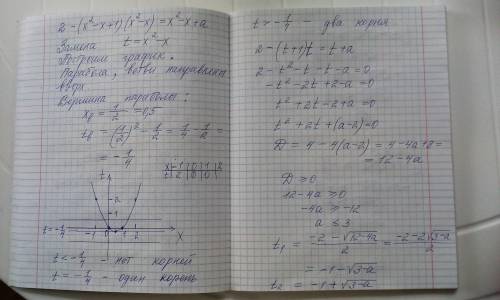 2-(x²-x+1)(x²-x)=x²-x+a
Замена t=x²-x
Построим график.
Парабола, ветви направлены
вверх
Вершина параболы:
x_в = 1/2 = 0,5
t_в = (1/2)² - 1/2 = 1/4 - 1/2 =
= -1/4
x|-1|0|1|2
t|2|0|0|
t
2
1
t=-1/4 -1 0 1 2 x
t<-1/4 - нет корней
t=-1/4 - один корень
t>-1/4 - два корня
2-(t+1)t=t+a
2-t²-t-t-a=0
-t²-2t+2-a=0
t²+2t-2+a=0
t²+2t+(a-2)=0
D=4-4(a-2)=4-4a+8=
=12-4a
D≥0
12-4a≥0
-4a≥-12
a≤3
t₁=(-2-√(12-4a))/2=(-2-2√(3-a))/2
=-1-√(3-a)
t₂=-1+√(3-a)